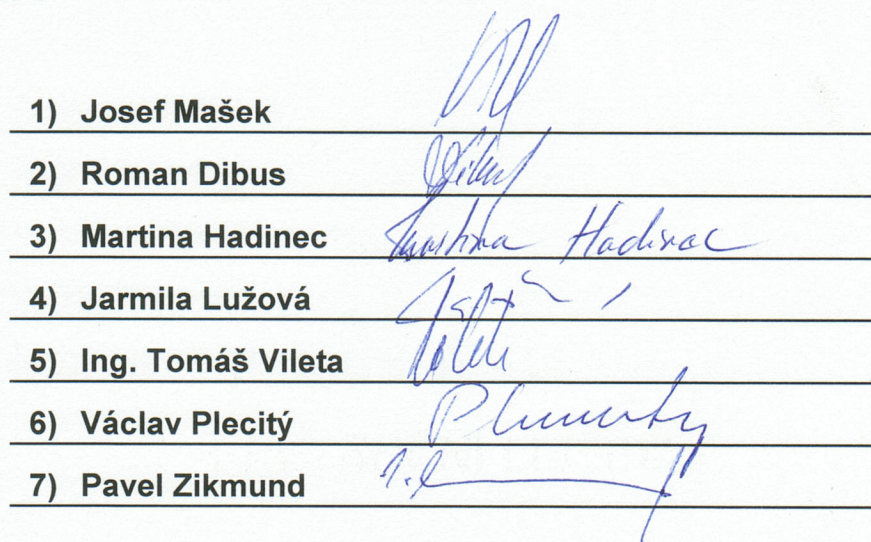 1) Josef Mašek
2) Roman Dibus
3) Martina Hadinec Martina Hadinec
4) Jarmila Lužová
5) Ing. Tomáš Vileta
6) Václav Plecitý
7) Pavel Zikmund